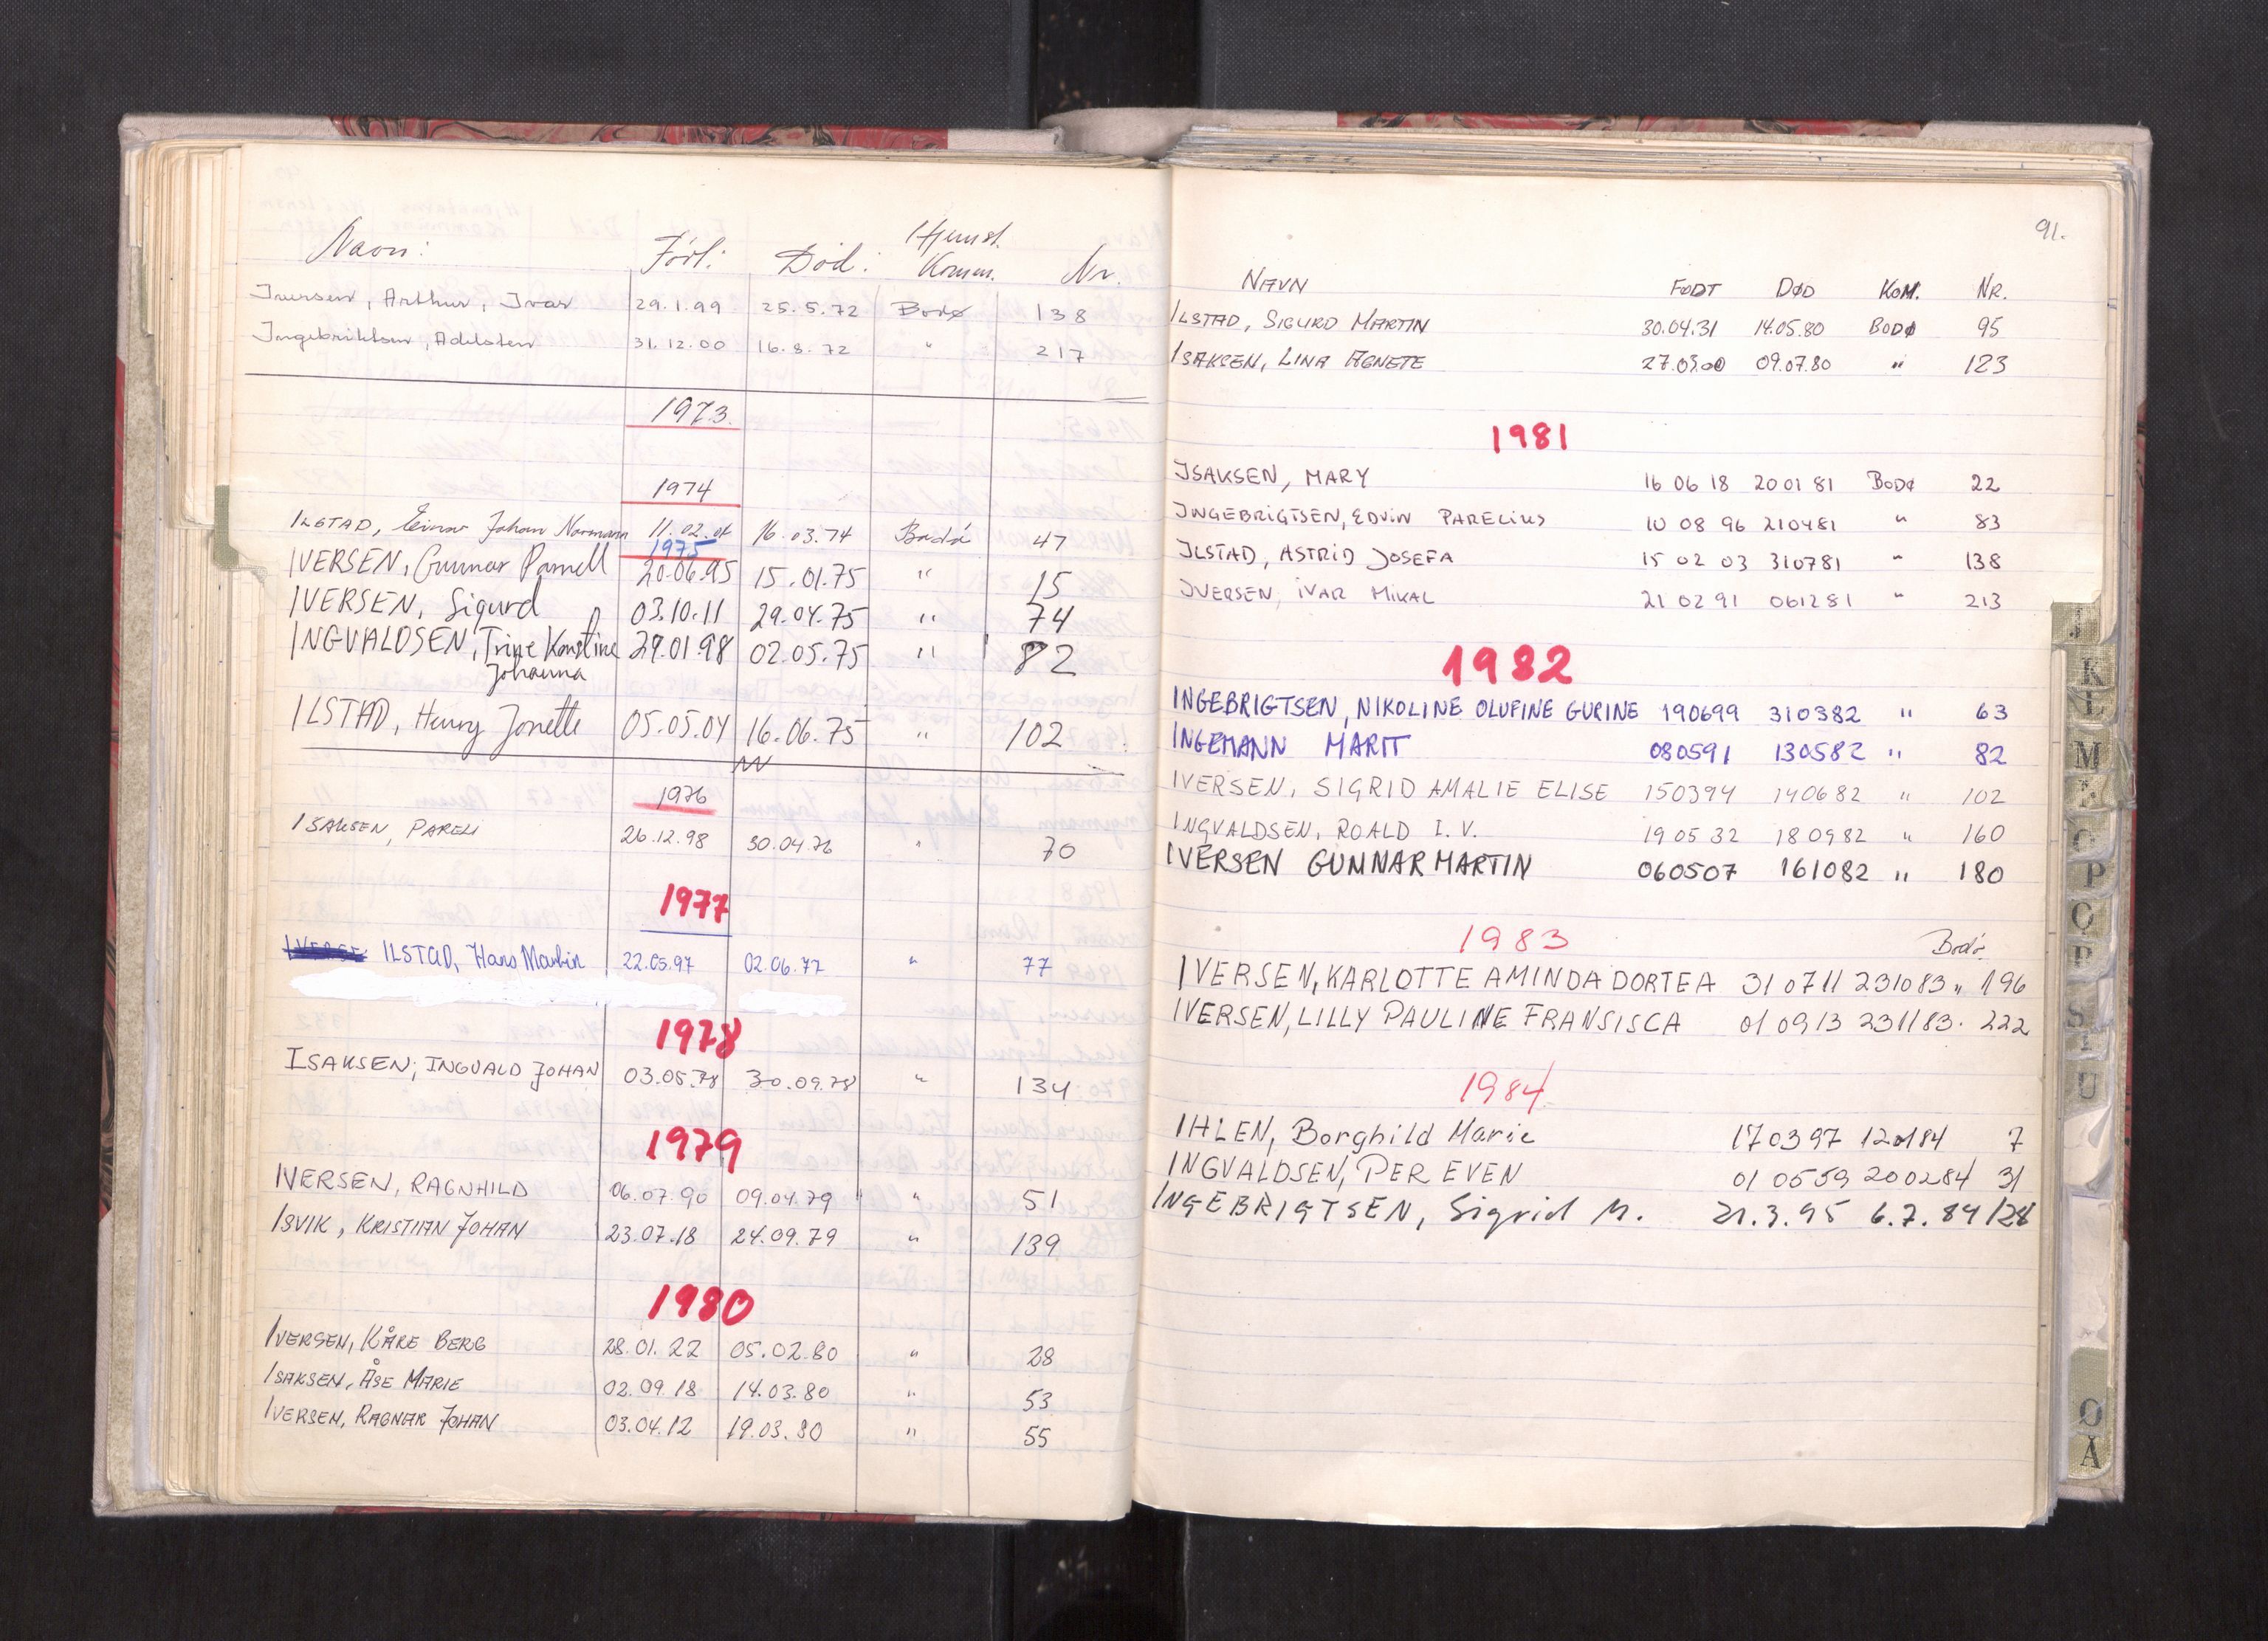 Hjemst.
Navn: Född: Död: Komm. Nr.
Iversen, Arthur, Ivar 29.1.99 25.5.72 Bodø 138
Ingebriktsen, Adelsten 31.12.00 16.8.72 " 217
1973.
1974
ILSTAD, Einar Johan Normann 11.02.01 16.03.74 Bodö 47
1975
IVERSEN, Gunnar Parnell 20.06.95 15.01.75 " 15
IVERSEN, Sigurd 03.10.11 29.04.75 " 74
INGVALDSEN, Trine Konstine 29.01.98 02.05.75 " 82
Johanna
ILSTAD, Henny Jonette 05.05.04 16.06.75 " 102
1976
ISAKSEN, PARELI 26.12.98 30.04.76 " 70
1977
IVERSE ILSTAD, Hans Martin 22.05.97 02.06.77 " 77
1978
ISAKSEN, INGVALD JOHAN 03.05.78 30.09.78 " 134
1979
IVERSEN, RAGNHILD 06.07.90 09.04.79 " 51
ISVIK, KRISTIAN JOHAN 23.07.18 24.09.79 " 139
1980
IVERSEN, KÅRE BERG 28.01.22 05.02.80 " 28
ISAKSEN, ÅSE MARIE 02.09.18 14.03.80 " 53
IVERSEN, RAGNAR JOHAN 03.04.12 19.03.80 " 55
91.
NAVN FØDT DØD KOM. NR.
ILSTAD, SIGURD MARTIN 30.04.31 14.05.80 BODØ 95
ISAKSEN, LINA AGNETE 27.03.00 09.07.80 " 123
1981
ISAKSEN, MARY 16 06 18 20 01 81 BODØ 22
INGEBRIGTSEN, EDVIN PARELIUS 10 08 96 210481 " 83
ILSTAD, ASTRID JOSEFA 15 02 03 310781 " 138
IVERSEN, IVAR MIKAL 21 02 91 061281 " 213
1982
INGEBRIGTSEN, NIKOLINE OLUFINE GURINE 190699 310382 " 63
INGEMANN MARIT 080591 130582 " 82
IVERSEN, SIGRID AMALIE ELISE 150394 140682 " 102
INGVALDSEN, ROALD I. V. 19 05 32 180982 " 160
IVERSEN GUNNAR MARTIN 060507 161082 " 180
1983
Bodö.
IVERSEN, KARLOTTE AMINDA DORTEA 310711 231083 " 196
IVERSEN, LILLY PAULINE FRANSISCA 010913 231183. 222
1984
IHLEN, Borghild Marie 170397 120184 7
INGVALDSEN, PER EVEN 010559 200284 31
INGEBRIGTSEN, Sigrid M. 21.3.95 6.7.84 128
J
K
L
M
O
P
Q
R
S
T
U
Ø
Å